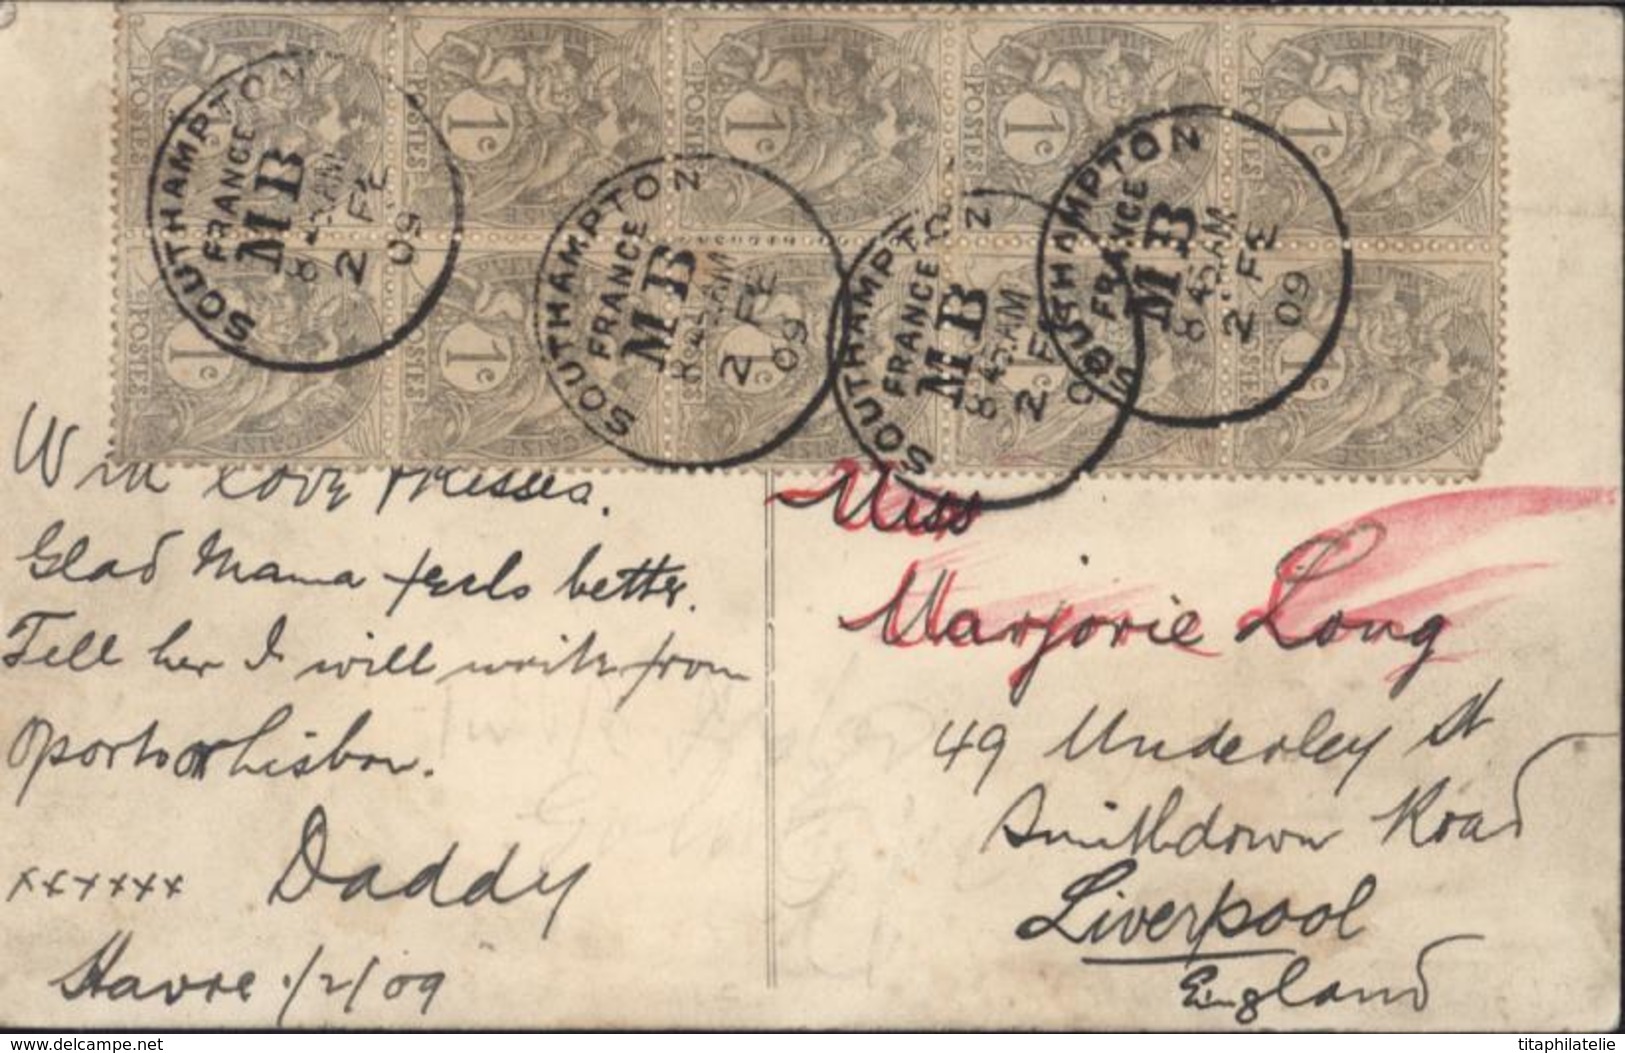 POSTES 1c
POSTES 1c
POSTES 1c
POSTES 1c
POSTES 1c
POSTES 1c
POSTES 1c
1c
1c
1c
SOUTHAMPTON
FRANCE
MB
8 45 AM
2 FE
09
SOUTHAMPTON
FRANCE
MB
8 45 AM
2 FE
09
SOUTHAMPTON
FRANCE
MB
8 45 AM
2 FE
09
SOUTHAMPTON
FRANCE
MB
8 45 AM
2 FE
09
With love & kisses.
Glad Mama feels better.
Tell her I will write from
Oporto or Lisbon.
xxxxxx Daddy
Havre 1/2/09
Miss
Marjorie Long
49 Underley St
Smithdown Road
Liverpool
England
delcampe.net
titaphilatelie